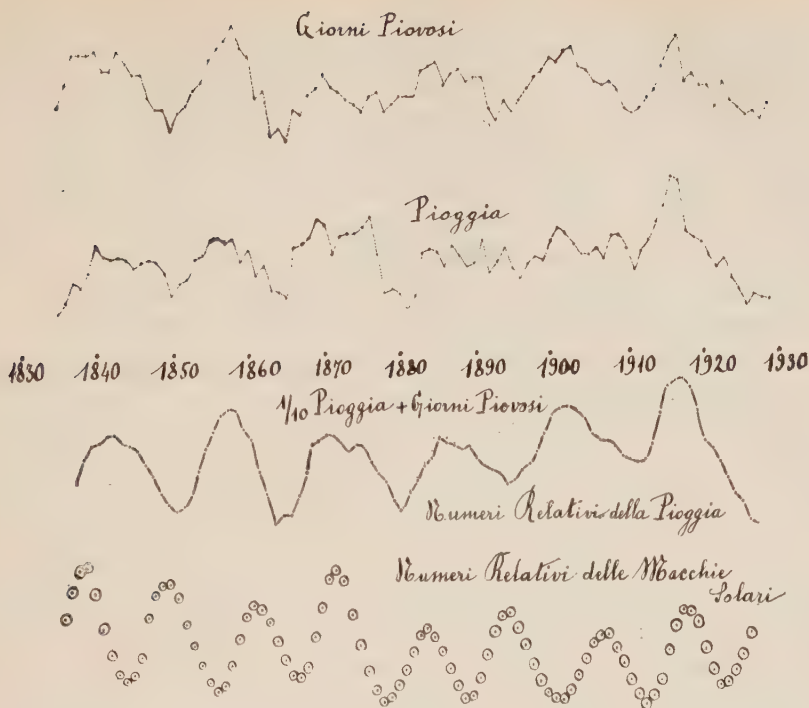 Giorni Piovosi
Pioggia
1830 1840 1850 1860 1870 1880 1890 1900 1910 1920 1930
1/10 Pioggia + Giorni Piovosi
Numeri Relativi della Pioggia
Numeri Relativi delle Macchie
Solari